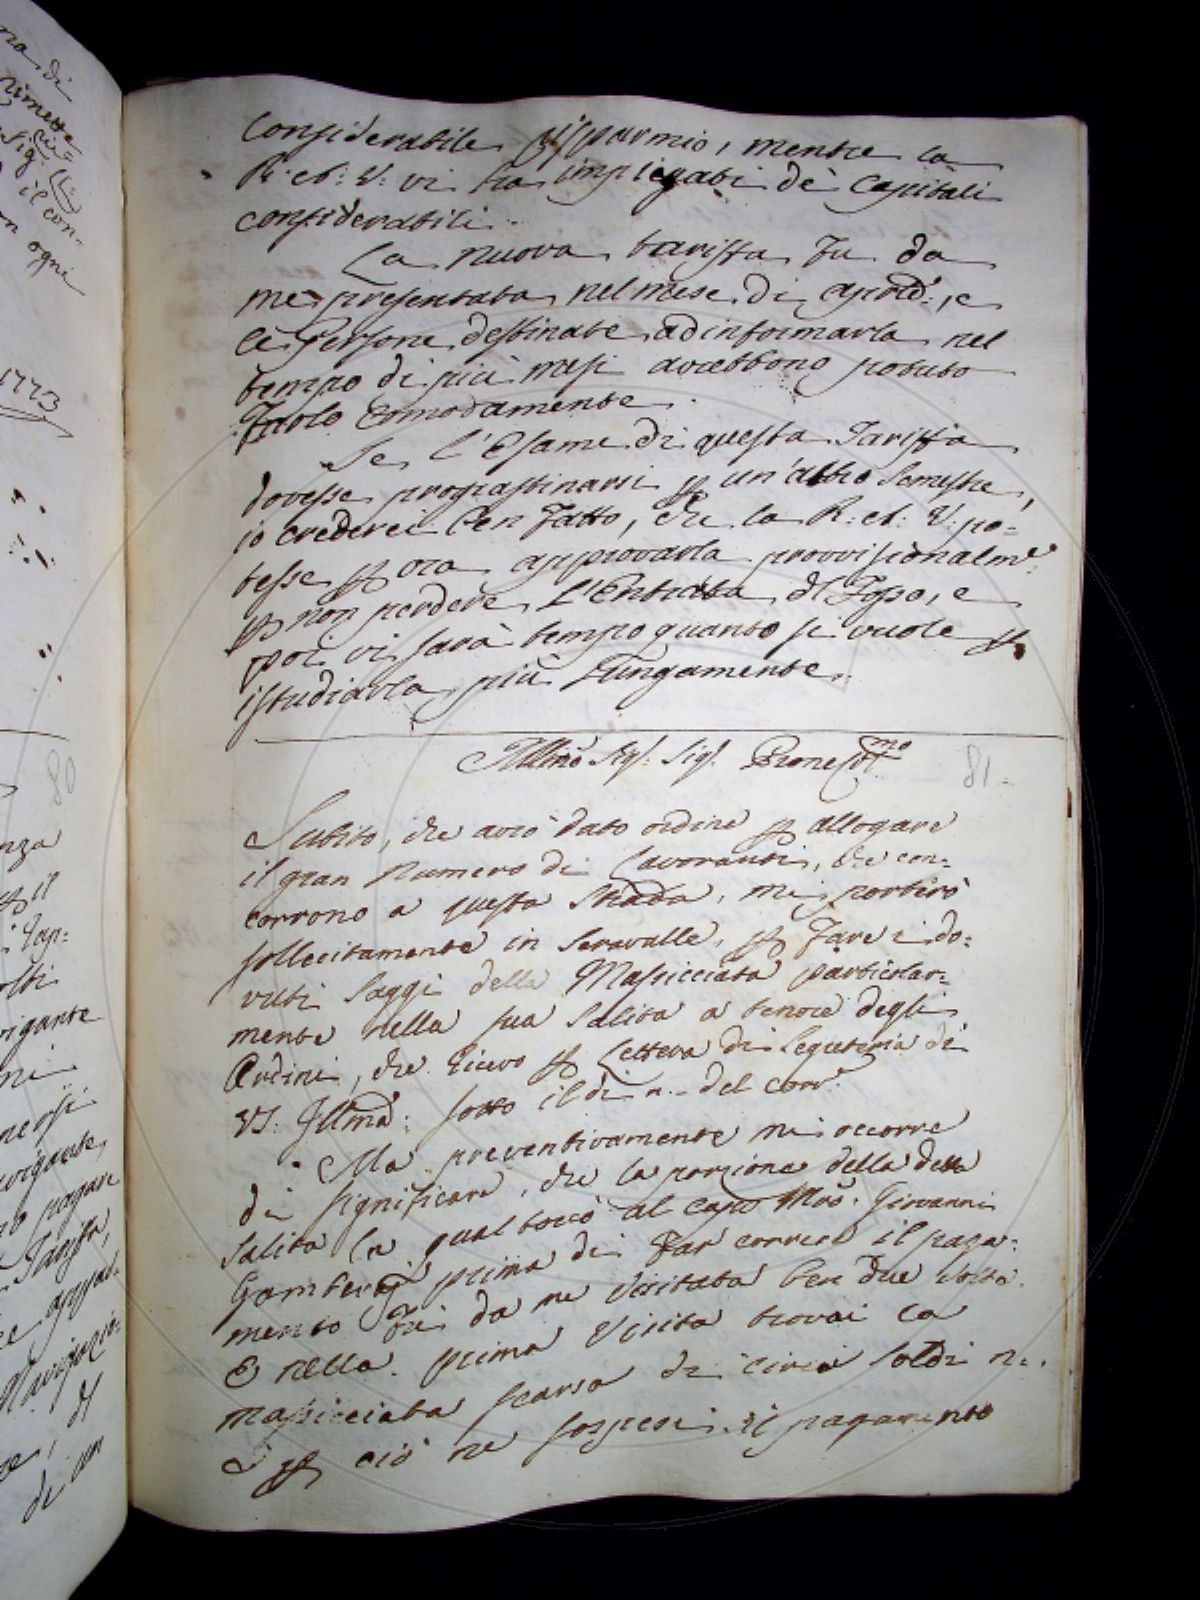 considerabile risparmio, mentre la
R: A: V: vi ha impiegati de' Capitali
considerabili.
La nuova tariffa fu da
me presentata nel mese di
le Persone destinate ad informarla nel
tempo di più mesi avrebbono potuto
farlo comodamente.
Se l'Esame di questa Tariffa
dovesse prograstinarsi p un'altro Semestre,
io crederei ben fatto, che la R: A: V: po=
tesse p ora approvarla provvisionalme
p non perdere l'Entrata del Fosso, e
poi vi sarà tempo quanto si vuole p
istudiarla più lungamente.
Illmo Sigr: Sigr. Prone Colmo
81
Subito, che avrò dato ordine p allogare
il gran Numero di Lavoranti, che con=
corrono a questa Strada, mi porterò
sollecitamente in Seravalle, p fare i do=
vuti Saggi della Massicciata particolar=
mente nella sua Salita a tenore degli
Ordini, che ricevo p Lettera di Segreteria di
VS. Illma: sotto il dì del corre
Ma preventivamente mi occorre
di significare, che la porzione della detta
Salita la qual toccò al Capo Mro. Giovanni
prima di far correre il paga=
mento fu da me visitata ben due volte.
E nella prima Visita trovai la
massicciata scarsa di circa soldi
E p ciò ne sospesi il pagamento
1773
80
di
rimette
Sig.
il con=
ogni
p il
vigante
pagare
Tariffa,
di